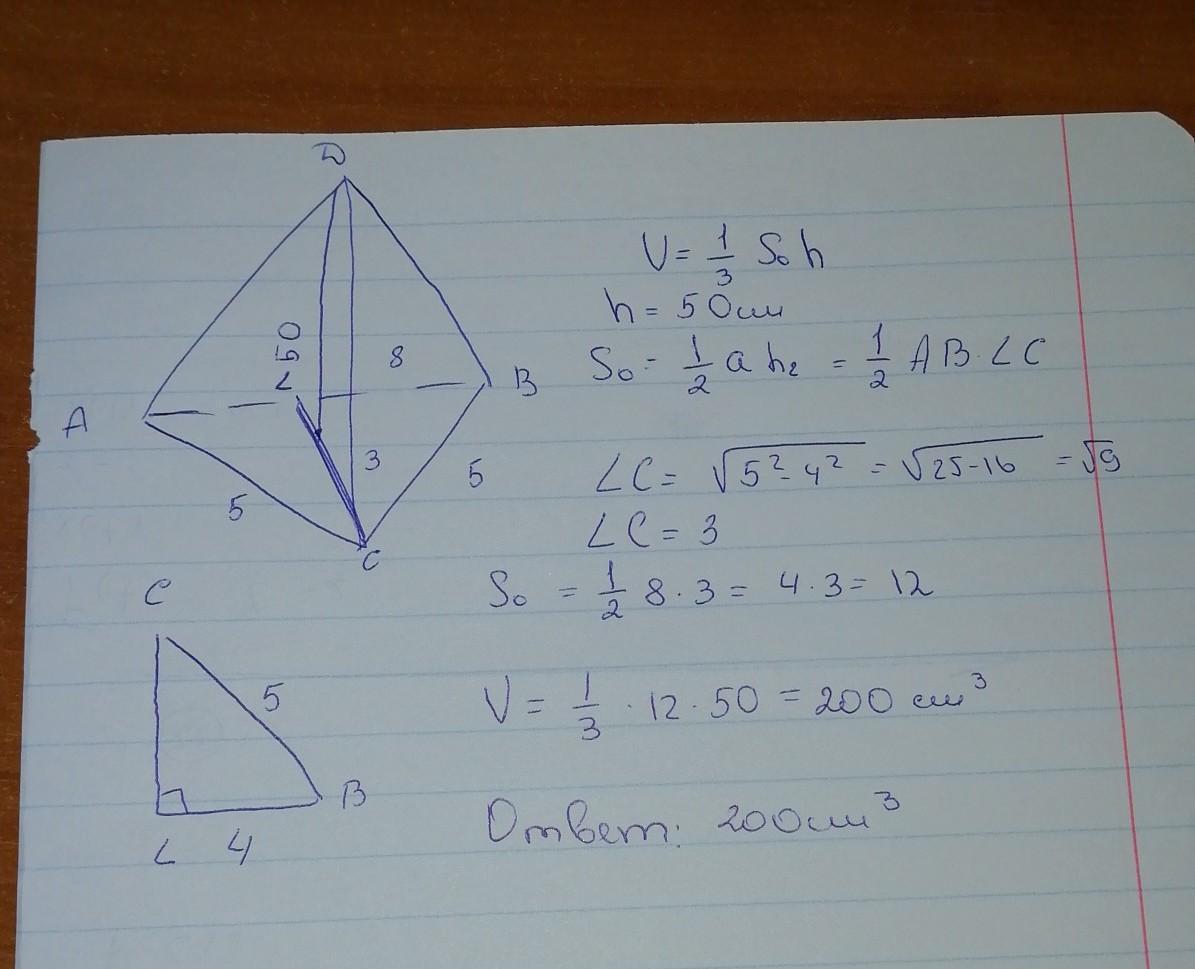 D
50
8
L
A
B
3
5
5
C
V = 1/3 S₀ h
h = 50 см
S₀ = 1/2 a h₂ = 1/2 AB · LC
LC = √(5² - 4²) = √(25-16) = √9
LC = 3
S₀ = 1/2 8 · 3 = 4 · 3 = 12
V = 1/3 · 12 · 50 = 200 см³
Ответ: 200 см³
C
5
B
L 4